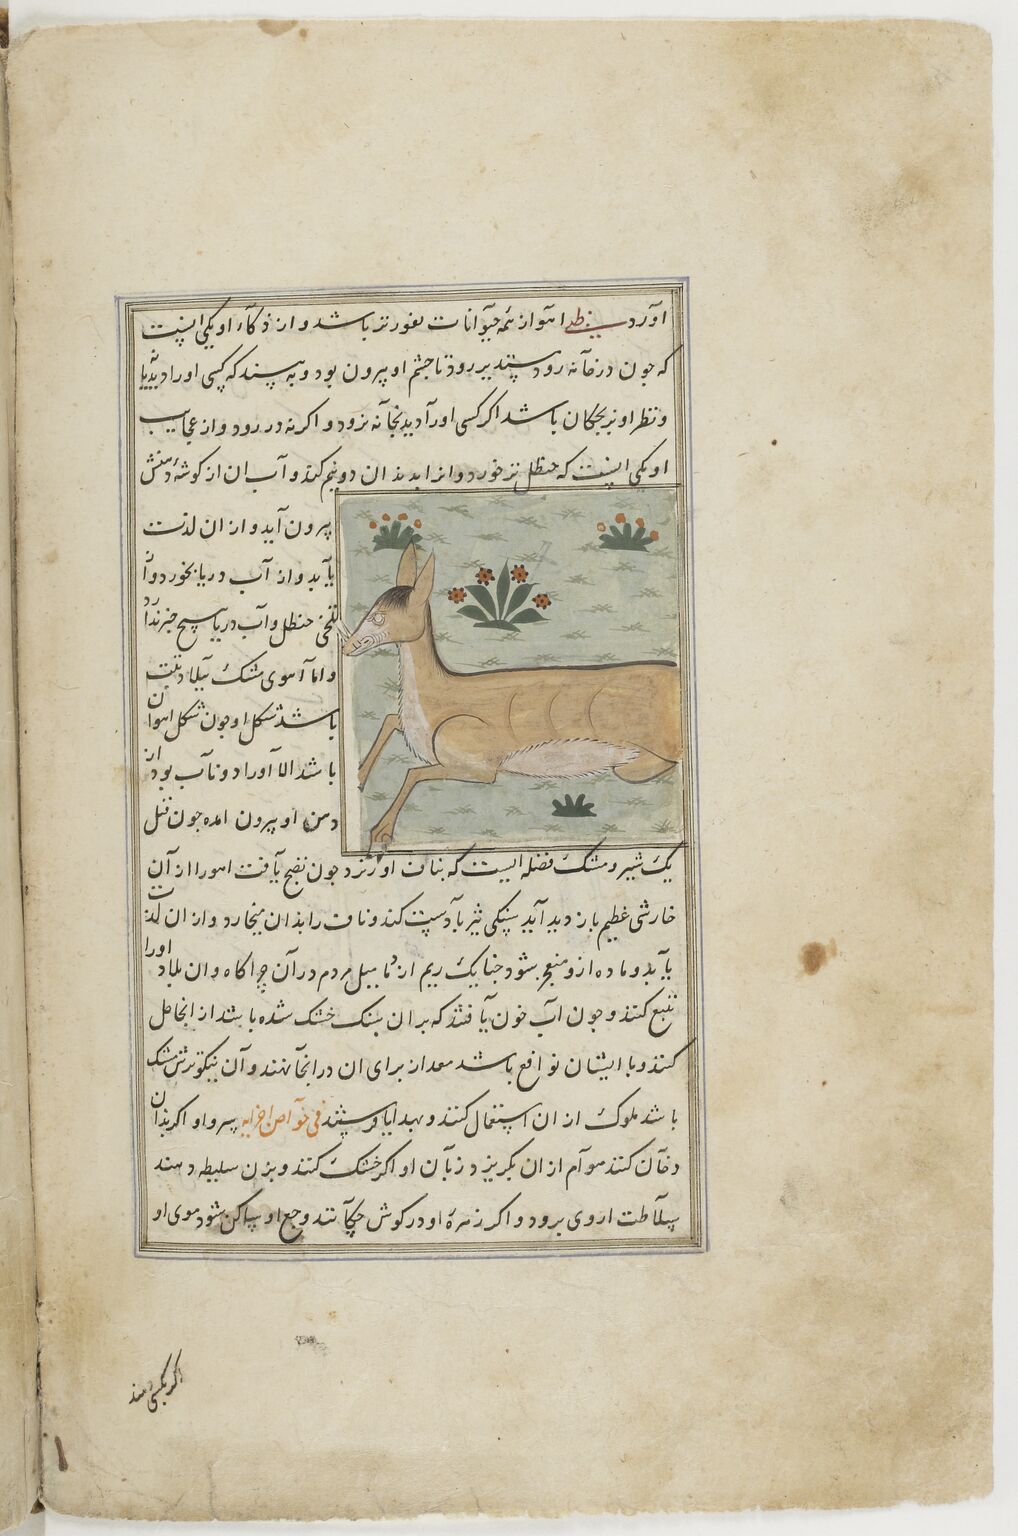 آورد ظبی اهو از همه حیوانات نفورتر باشد و از ذکاء او یکی اینست
که چون در خانه رود بستدبر رود تا چشم او بیرون بود و به بیند که کسی اورا دیدیا
و نظر او بر بچکان باشد اگر کسی اورا دید بخانه نرود و اگر نه در رود و از عجایب
او یکی اینست که حنظل تر خورد و از ان دو نیم کند و آب ان از کوشهٔ دهنش
بیرون آید و از ان لذت
یابد و از آب دریا بخورد و از
تلخی حنظل و آب دریا هیچ خبر ندارد
و اما آهوی مشک ببلاد تبت
باشد شکل او چون شکل اهوان
باشد الا آ اورا دو ناب بود از
دهن او بیرون امده چون فیل
یک شبر و مشک فضله ایست که بناف او ریزد چون نضج یافت اهو را از آن
خارشی عظیم بازدید آید بسنکی تیز بادست کند و ناف را بدان میخارد و از ان لذت
یابد و ماده ازو منفجر شود چنانک ریم از دمامیل مردم در آن چراکاه و ان بلاد اورا
تتبع کنند و چون آب خون یافتند که بر ان سنک خشک شده باشد از انجا حمل
کنند و با ایشان نوافع باشد معد از برای ان در انجا نهند و آن نیکوترین مشک
باشد ملوک از ان استعمال کنند و بهدایا فرستند فی خواص اجزایه سرو او اگر بدان
دخان کنند هوام از ان بگریزد زبان او اگر خشک کنند و بزن سلیطه دهند
سلاطت ازوی برود و اگر زهرهٔ او در کوش چکانند وجع او ساکن شود موی او
اگر بکسی دهند